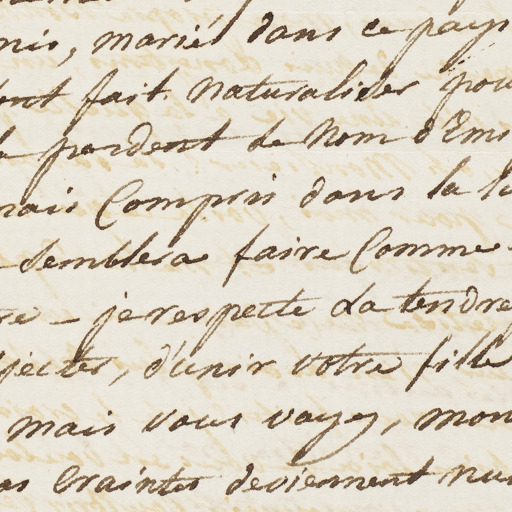 nis, mariés dans ce pays
font fait naturaliser pou
perdent le Nom d'Emi
mais Compris dans la li
semblera faire Comme
re - je respecte la tendre
jectes, d'unir votre fille
mais vous voyez, mon
as Craintes deviennent nul